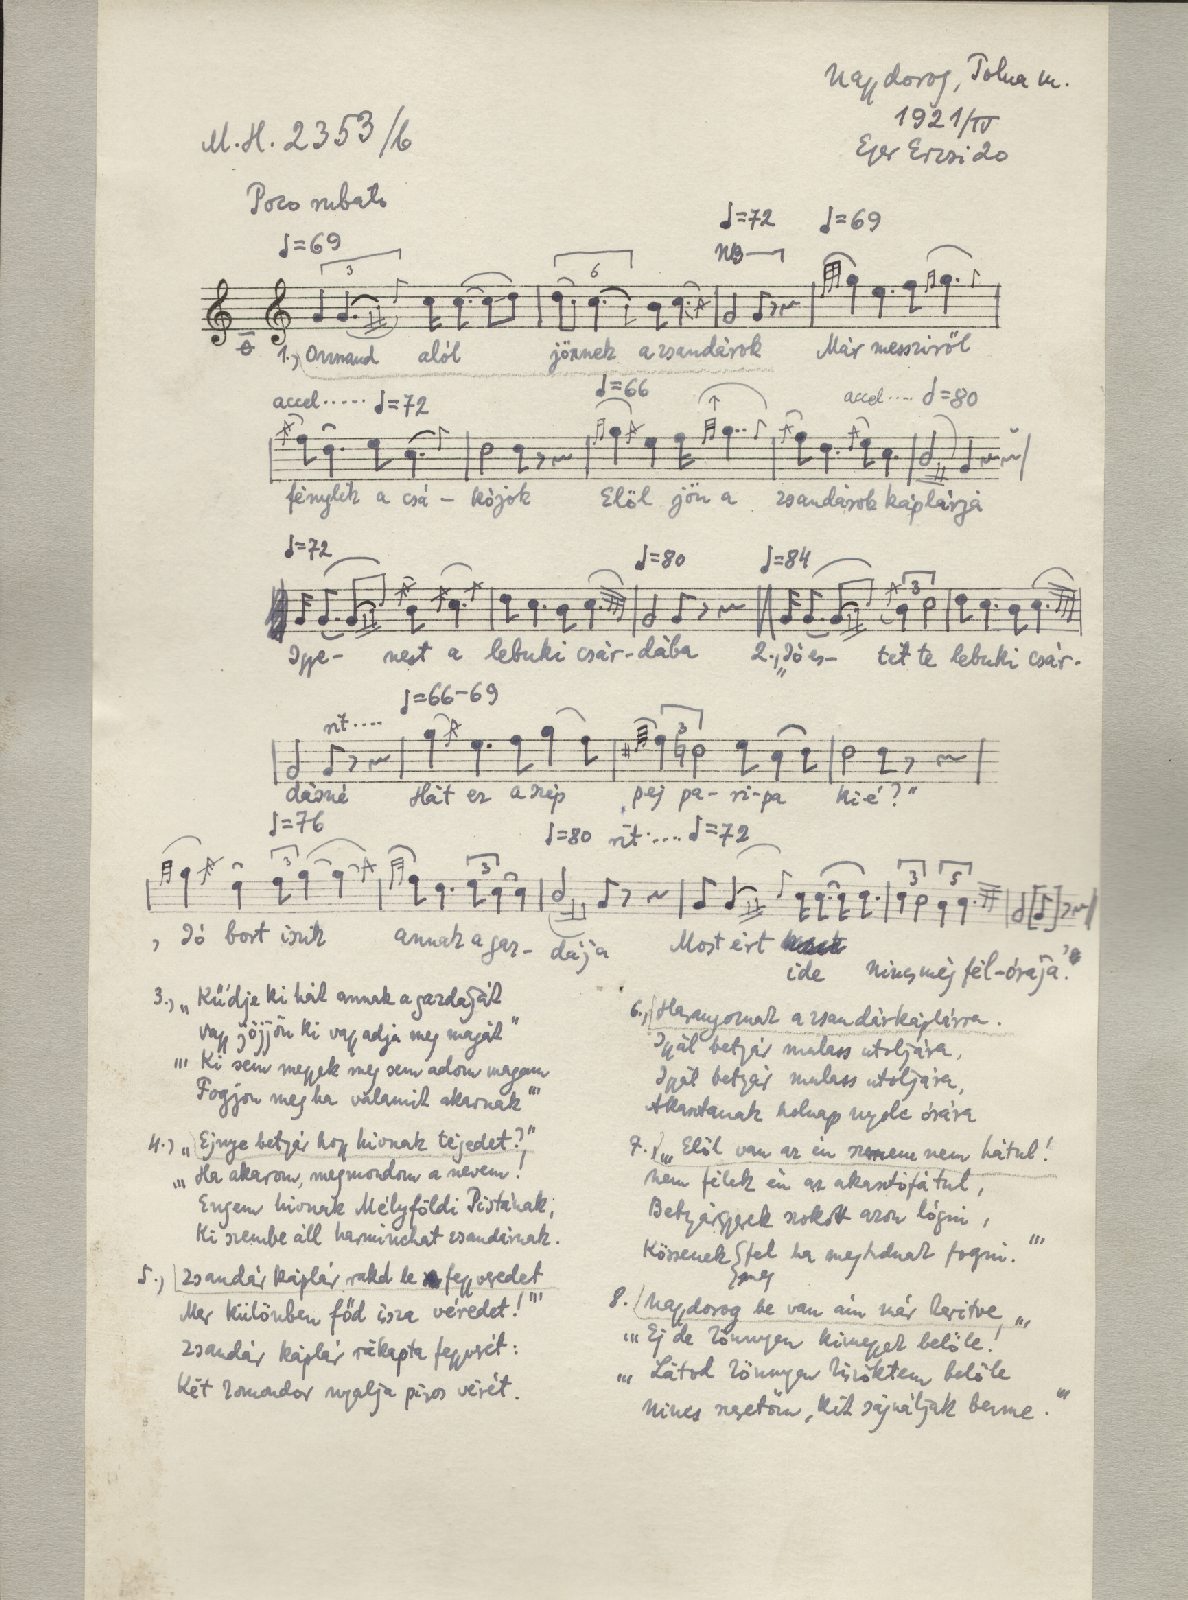 Nagydorog, Tolna m.
1921/IV
M.H. 2353/b
Eger Erzsi 20
Poco rubato
♩=69 ♩=72 ♩=69
NB
3 6
1., Onnand alól jönnek a zsandárok Már messziről
accel..... ♩=72 ♩=66 accel.... ♩=80
fénylik a csá- kójok Elöl jön a zsandárok káplárja
♩=72 ♩=80 ♩=84
3
Igye- nest a lebuki csár-dába 2., „Jó es- tét te lebuki csár-
rit.... ♩=66-69
3
dásné Hát ez a szép pej pa-ri-pa ki-é?"
♩=76 ♩=80 rit..... ♩=72
3 3 3 5
Jó bort iszik annak a gaz- dája Most ért
ide nincs még fél-órája."
3., „Küdje ki hát annak a gazdáját
vagy jöjjön ki vagy adja meg magát"
"' Ki sem megyek meg sem adom magam
Fogjon meg ha valamit akarnak"'
4., „Ejnye betyár hogy hivnak tégedet?"
"' Ha akarom, megmondom a nevem!
Engem hivnak Mélyföldi Pistának,
Ki szembe áll harminchat zsandárnak.
5., Zsandár káplár rakd le fegyveredet
Mer különben főd issza véredet!"'
Zsandár káplár rákapta fegyverét:
Két komondor nyalja piros vérét.
6., Harangoznak a zsandárkáplárra.
Igyál betyár mulass utoljára,
Igyál betyár mulass utoljára,
Akasztanak holnap nyolc órára
7., „ Elöl van az én szemem nem hátul!
Nem félek én az akasztófátul,
Betyárgyerek szokott azon lógni,
Kössenek fel ha meghdnak fogni."'
meg
8. Nagydorog be van ám már keritve,
"' Ej de könnyen kimegyek belőle!
"' Látod könnyen kiszöktem belőle
Nincs szeretőm, kit sajnáljak benne."'